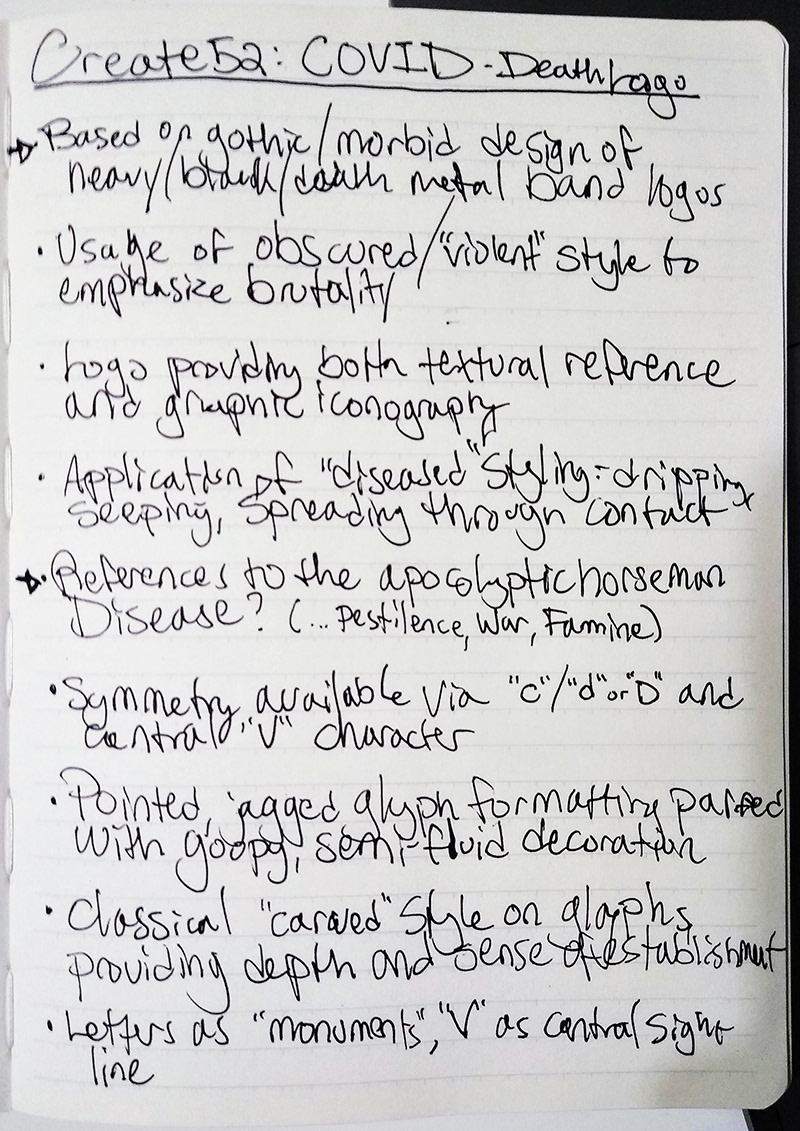 Create52: COVID-Death Logo
Based on gothic/morbid design of
heavy/black/death metal band logos
• Usage of obscured/"violent" style to
emphasize brutality
• Logo providing both textural reference
and graphic iconography
• Application of "diseased" styling - dripping,
seeping, spreading through contact
• References to the apocolyptic horseman
Disease? (... Pestilence, War, Famine)
• Symmetry available via "c"/"d" or "D" and
central "V" character
• Pointed, jagged glyph formatting paired
with goopy, semi-fluid decoration
• Classical "carved" style on glyphs,
providing depth and sense of establishment
• Letters as "monuments", "V" as central sight
line